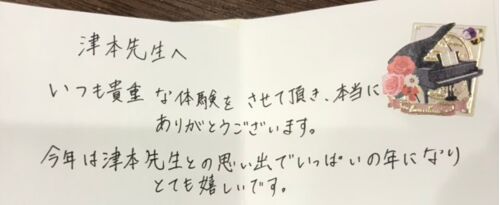 津本先生へ
いつも貴重な体験をさせて頂き、本当に
ありがとうございます。
今年は津本先生との思い出でいっぱいの年になり
とても嬉しいです。